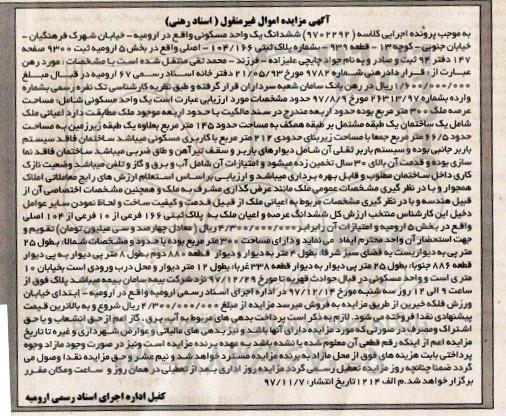 آگهی مزایده اموال غیرمنقول ( اسناد رهنی )
به موجب پرونده اجرایی کلاسه (۹۷۰۲۲۹۲) ششدانگ یک واحد مسکونی واقع در ارومیه - خیابان شهرک فرهنگیان -
خیابان جنوبی - کوچه ۱۳ - قطعه ۹۳۹ - بشماره پلاک ثبتی ۱۰۴/۱۶۶ - اصلی واقع در بخش ۵ ارومیه ثبت ۹۳۰۰ صفحه
۱۴۷ دفتر ۹۴ ثبت و صادر و به نام جواد چاپچی علیزاده - فرزند - محمد تقی منتقل شده است با مشخصات : مورد رهن
عبارت از : قرار دادرهنی شماره ۹۷۸۲ مورخ ۲۱/۰۵/۹۳ دفتر خانه اسناد رسمی ۶۷ ارومیه در قبال مبلغ
۱/۶۰۰/۰۰۰/۰۰۰ ریال در رهن بانک سامان شعبه سرداران قرار گرفته و طبق نظریه کارشناسی تک نفره رسمی بشماره
وارده بشماره ۲۶۳۱۳/۹۷ مورخ ۹۷/۸/۹ حدود مشخصات مورد ارزیابی عبارت است یک واحد مسکونی شامل: مساحت
عرصه ملک ۳۰۰ متر مربع بوده حدود اربعه مندرج در سند مالکیت با حدود اربعه موجود ملک مطابقت دارد اعیانی ملک
شامل یک ساختمان یک طبقه مشتمل بر طبقه همکف به مساحت حدود ۱۴۵ متر مربع بعلاوه یک طبقه زیرزمین به مساحت
حدود ۶۶/۵ متر مربع جمعا با مساحت زیربنای حدودی ۲۱۲ متر مربع با کاربری مسکونی میباشد ساختمان فاقد سیستم
باربر جانبی بوده و سیستم باربر ثقلی آن شامل دیوارهای باربر و سقف تیرآهن و طاق ضربی میباشد ساختمان فاقد نما
سازی بوده و قدمت آن بالای ۳۰ سال تخمین زده میشود و امتیازات آن شامل آب و برق و گاز و تلفن میباشد وضعیت نازک
کاری داخل ساختمان مطلوب و قابل بهره برداری میباشد و ارزیابی براساس استعلام ارزش های رایج معاملاتی املاک
همجوار و با در نظر گیری مشخصات عمومی ملک مانند عرض گذاری مشرف به ملک و همچنین مشخصات اختصاصی آن از
قبیل هندسه و با در نظرگیری مشخصات مربوط به اعیانی ملک از قبیل قدمت و کیفیت ساخت و لحاظ نمودن سایر عوامل
دخیل این کارشناس منتخب ارزش کل ششدانگ عرصه و اعیان ملک به پلاک ثبتی ۱۶۶ فرعی از ۱۰ فرعی از ۱۰۴ اصلی
واقع در بخش ۵ ارومیه و امتیازات آن رابرابر ۴/۳۰۰/۰۰۰/۰۰۰ ریال (معادل چهارصد و سی میلیون تومان) تقویم و
جهت استحضار آن واحد محترم ایفاد می نماید و دارای مساحت ۳۰۰ متر مربع بوده با حدود و مشخصات شمالا: بطول ۲۵
متر پی به دیواریست به فضای سبز شرقا: بطول ۴ متر به دیوار و دیوار قطعه ۸۸۰ دوم بطول ۸ متر پی دیوار به پی دیوار
قطعه ۸۸۶ جنوبا: بطول ۲۵ متر پی دیوار به دیوار قطعه ۳۳۸ غربا: بطول ۱۲ متر دیوار و محل درب ورودی است بخیابان ۱۰
متری است و واحد مسکونی در قبال حوادث قهریه تا مورخ ۹۷/۱۲/۲۹ نزد شرکت بیمه سامان بیمه میباشد پلاک فوق از
ساعت ۹ الی ۱۲ روز سه شنبه مورخ ۹۷/۱۲/۱۴ در اداره اجرای اسناد رسمی ارومیه واقع در ارومیه - ابتدای خیابان
ورزش فلکه خیرین از طریق مزایده به فروش میرسد مزایده از مبلغ ۴/۳۰۰/۰۰۰/۰۰۰ ریال شروع و به بالاترین قیمت
پیشنهادی نقدا فروخته می شود. لازم به ذکر است پرداخت بدهی های مربوط به آب، برق، گاز اعم از حق انشعاب و یا حق
اشتراک و مصرف در صورتی که مورد مزایده دارای آنها باشد و نیز بدهی های مالیاتی و عوارض شهرداری و غیره تا تاریخ
مزایده اعم از اینکه رقم قطعی آن معلوم شده یا نشده باشد به عهده برنده مزایده است و نیز در صورت وجود مازاد وجوه
پرداختی بابت هزینه های فوق از محل مازاد به برنده مزایده مسترد خواهد شد و نیم عشر و حق مزایده نقدا وصول می
گردد ضمنا چنانچه روز مزایده تعطیل رسمی گردد مزایده روز اداری بعد از تعطیلی در همان روز و ساعت ومکان مقرر
برگزار خواهد شد.م الف ۱۲۱۴ تاریخ انتشار: ۹۷/۱۱/۷
کفیل اداره اجرای اسناد رسمی ارومیه